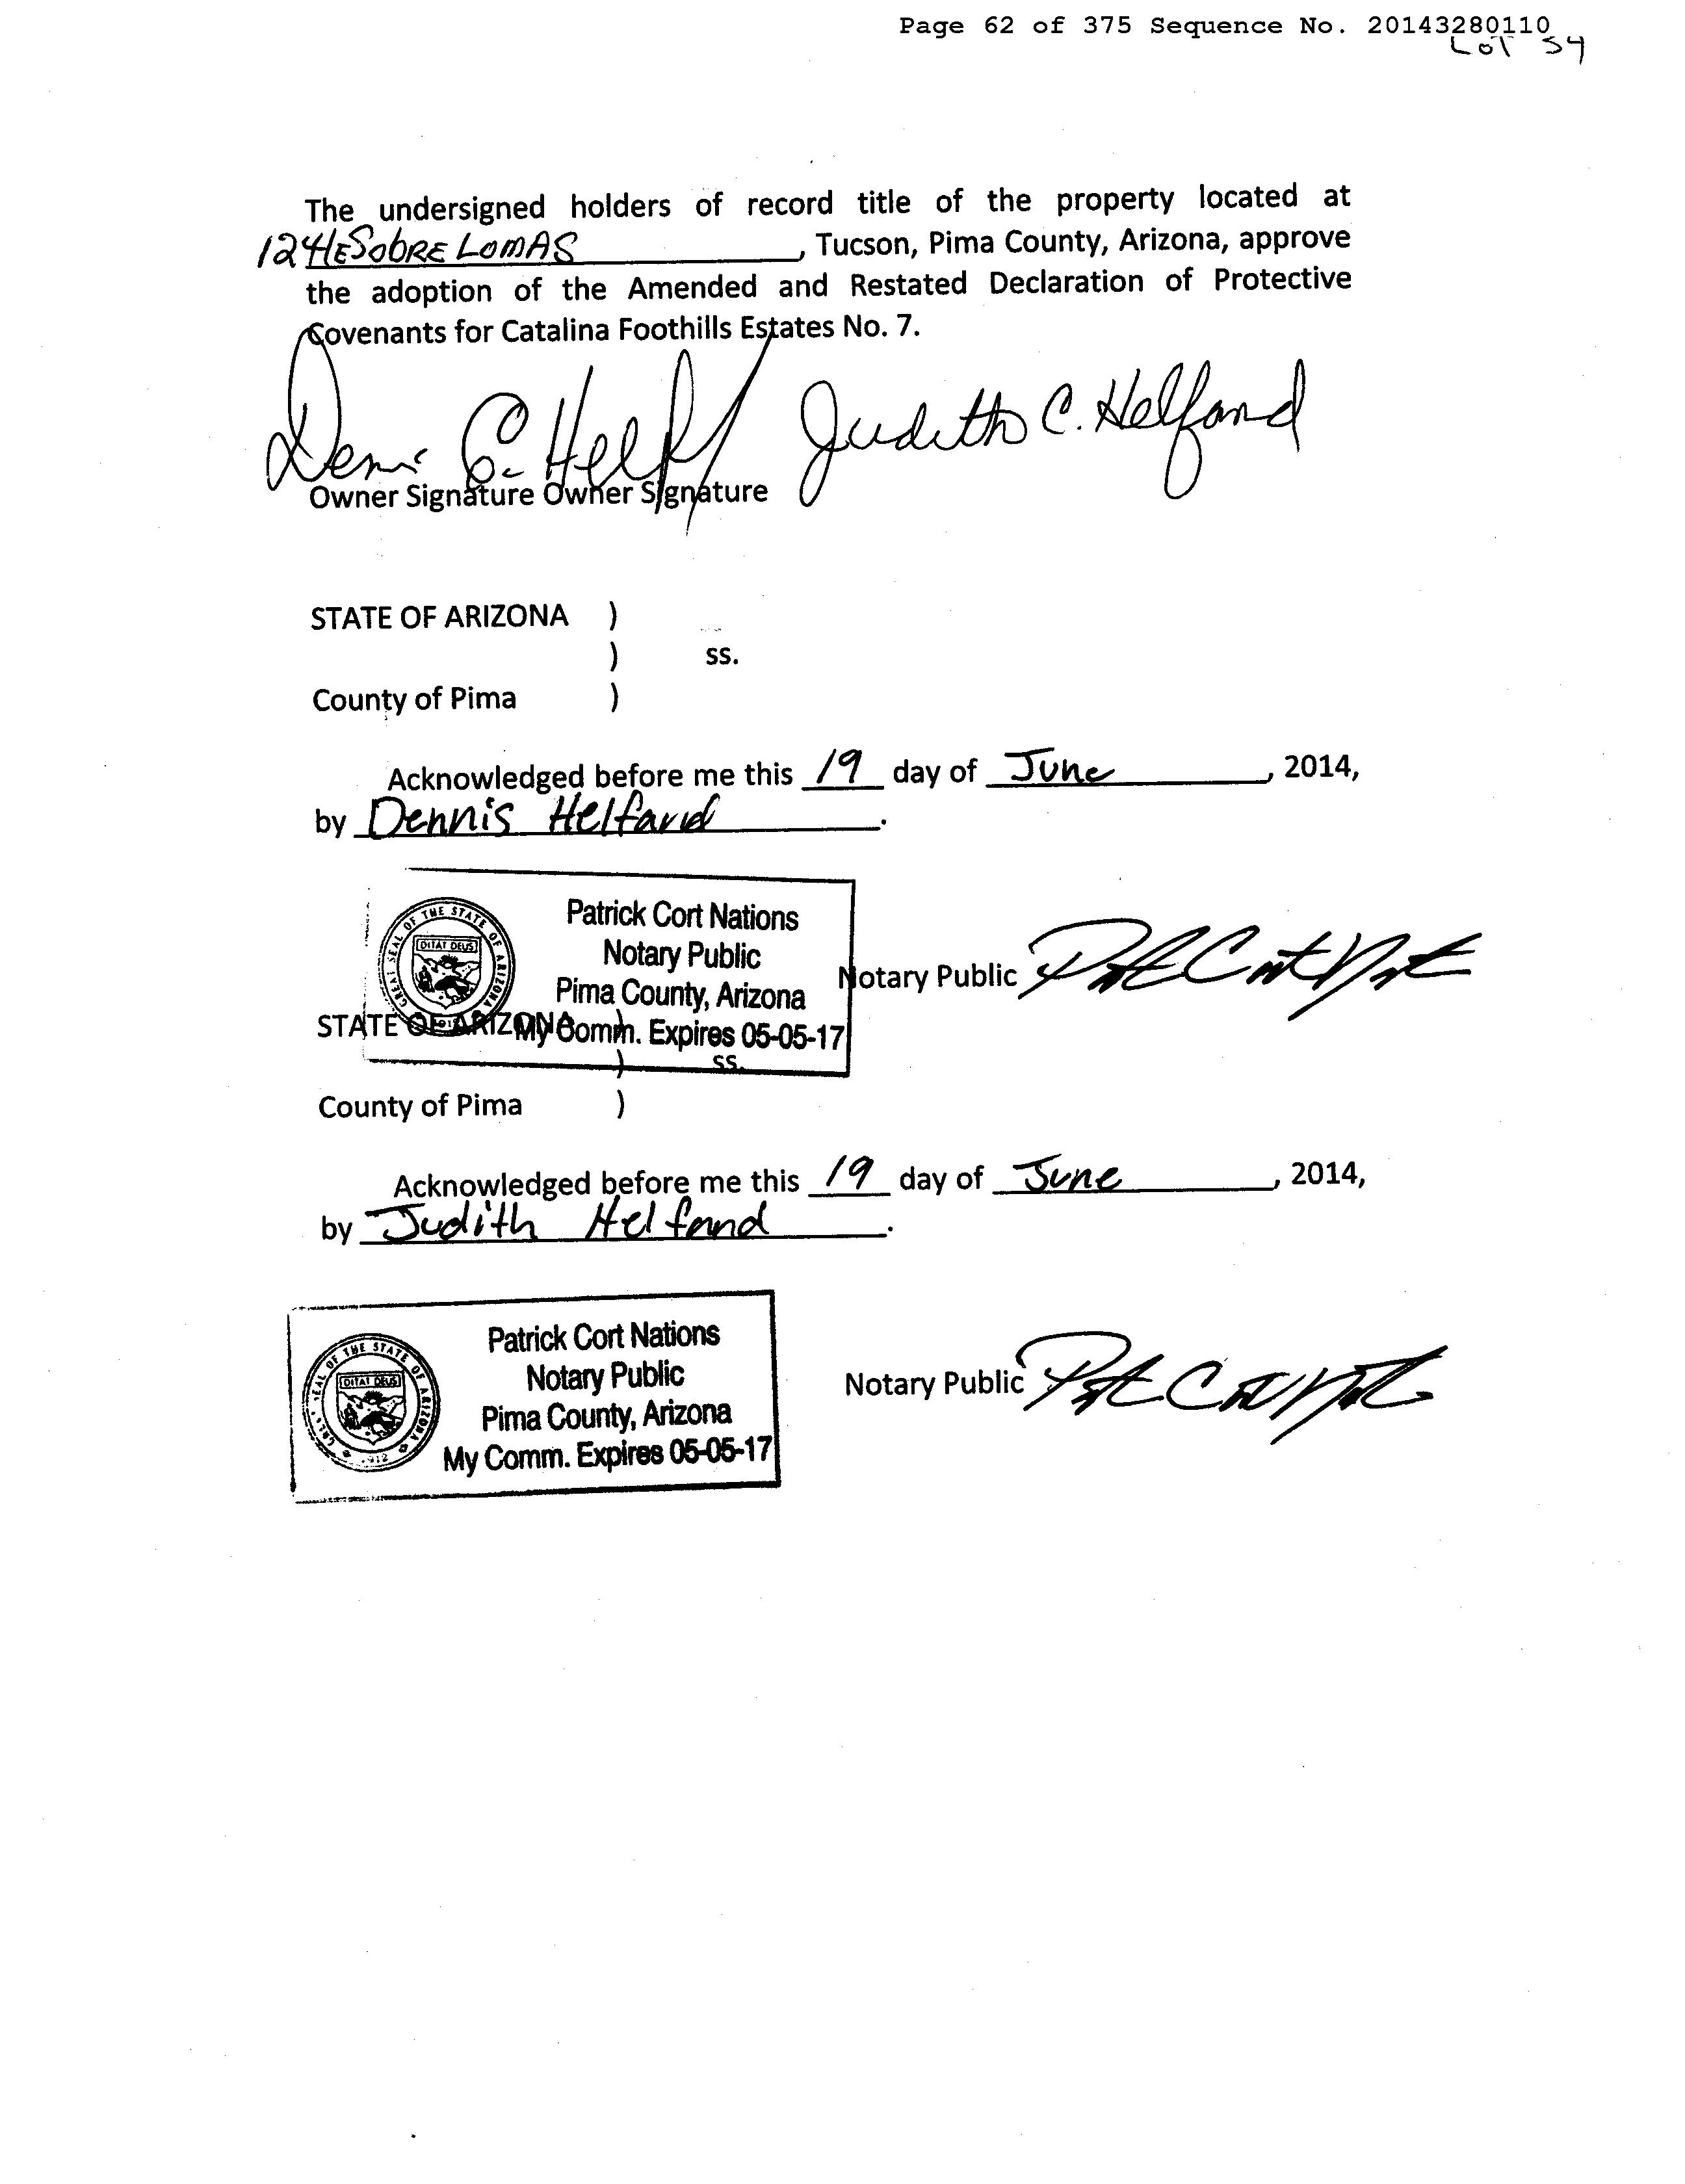 Page 62 of 375 Sequence No. 20143280110
LOT 54
The undersigned holders of record title of the property located at
124 E SOBRE LOMAS, Tucson, Pima County, Arizona, approve
the adoption of the Amended and Restated Declaration of Protective
Covenants for Catalina Foothills Estates No. 7.
Judith C. Helfand
Owner Signature Owner Signature
STATE OF ARIZONA )
) ss.
County of Pima )
Acknowledged before me this 19 day of June, 2014,
by Dennis Helfand.
GREAT SEAL OF THE STATE OF ARIZONA
DITAT DEUS
Patrick Cort Nations
Notary Public
Pima County, Arizona
My Comm. Expires 05-05-17
Notary Public
STATE OF ARIZONA )
) ss.
County of Pima )
Acknowledged before me this 19 day of June, 2014,
by Judith Helfand.
GREAT SEAL OF THE STATE OF ARIZONA
DITAT DEUS
1912
Patrick Cort Nations
Notary Public
Pima County, Arizona
My Comm. Expires 05-05-17
Notary Public